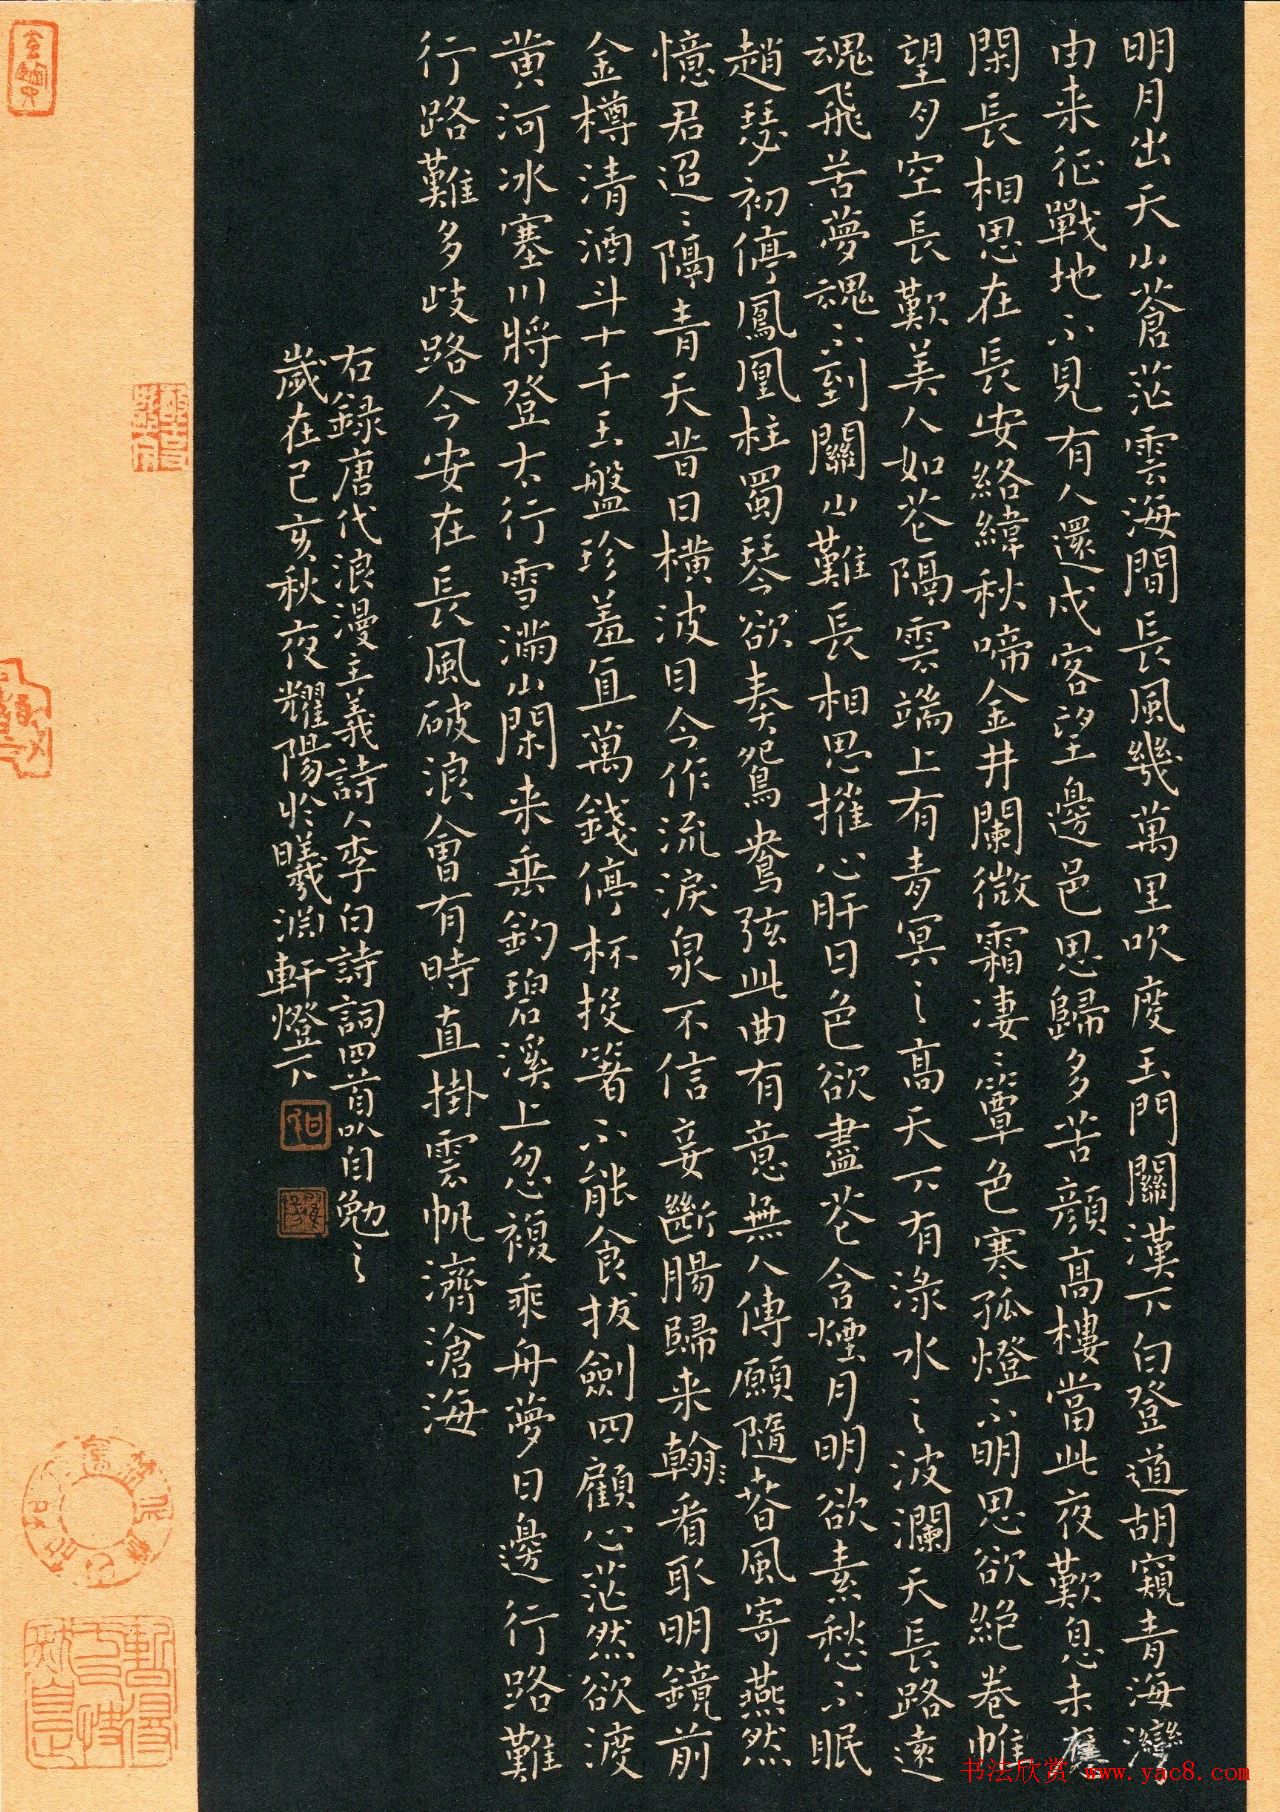 明月出天山蒼茫雲海間長風幾萬里吹度玉門關漢下白登道胡窺青海灣
由来征戰地不見有人還戍客望邊邑思歸多苦顏高樓當此夜歎息未應
閑長相思在長安絡緯秋啼金井闌微霜淒〻簟色寒孤燈不明思欲絕卷帷
望月空長歎美人如花隔雲端上有青冥之高天下有淥水之波瀾天長路遠
魂飛苦夢魂不到關山難長相思摧心肝日色欲盡花含煙月明欲素愁不眠
趙瑟初停鳳凰柱蜀琴欲奏鴛鴦弦此曲有意無人傳願隨春風寄燕然
憶君迢〻隔青天昔日橫波目今作流淚泉不信妾斷腸歸来看取明鏡前
金樽清酒斗十千玉盤珍羞直萬錢停杯投箸不能食拔劍四顧心茫然欲渡
黃河冰塞川將登太行雪滿山閑来垂釣碧溪上忽複乘舟夢日邊行路難
行路難多歧路今安在長風破浪會有時直掛雲帆濟滄海
右録唐代浪漫主義詩人李白詩詞四首以自勉之
歲在己亥秋夜耀陽於曦淵軒燈下
书法欣赏 www.yac8.com